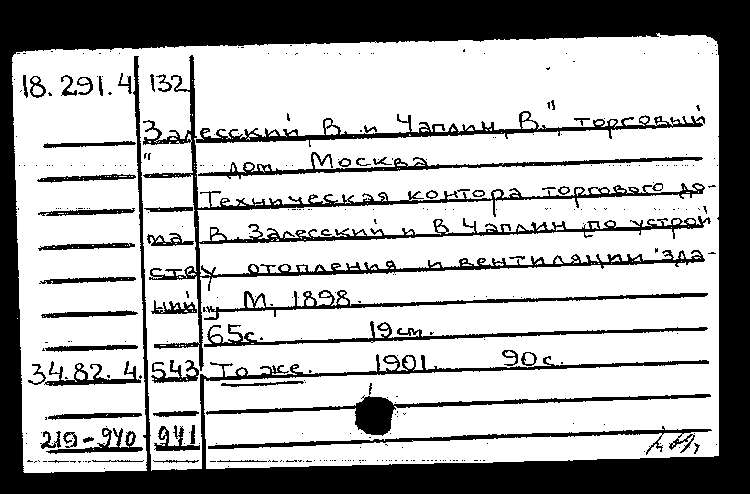 18.291.4 132
"Залесский, В. и Чаплин, В.", торговый
дом. Москва.
Техническая контора торгового до-
ма В. Залесский и В Чаплин по устрой
ству отопления и вентиляции зда-
ний М., 1898.
65с. 19см.
34.82.4. 543 То же. 1901. 90с.
219-940 941